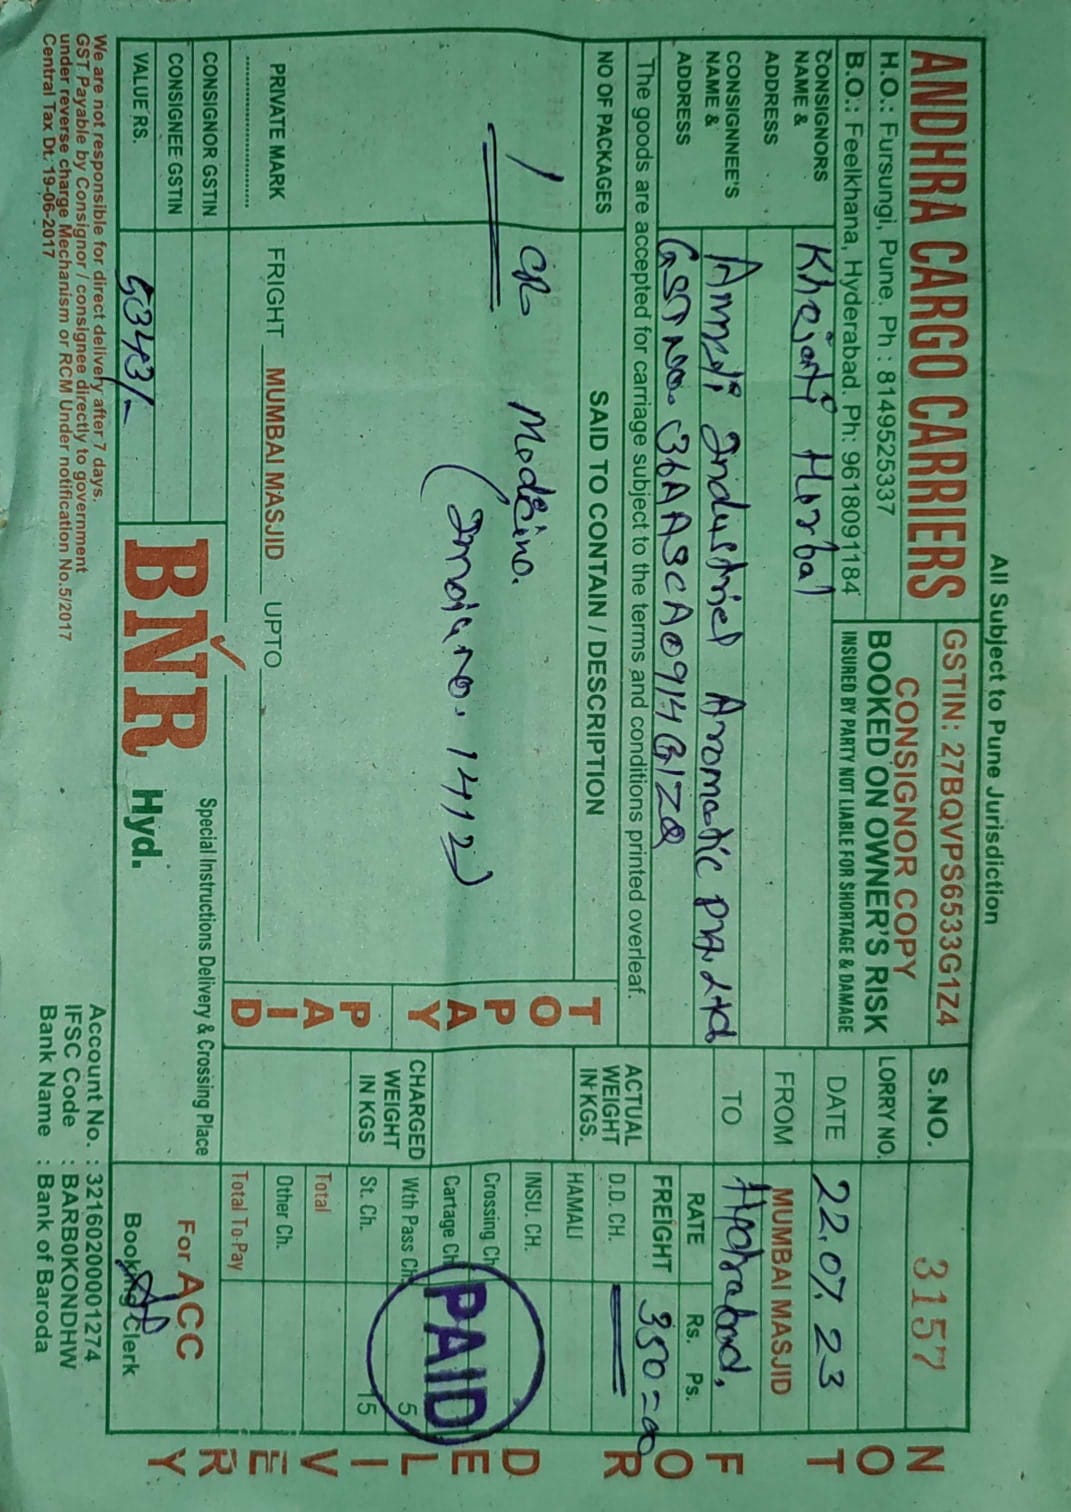 All Subject to Pune Jurisdiction
ANDHRA CARGO CARRIERS
H.O.: Fursungi, Pune, Ph : 8149525337
B.O.: Feelkhana, Hyderabad. Ph: 9618091184
GSTIN: 27BQVPS6533G1Z4
CONSIGNOR COPY
BOOKED ON OWNER'S RISK
INSURED BY PARTY NOT LIABLE FOR SHORTAGE & DAMAGE
S.NO. 3157
LORRY NO.
DATE 22.07.23
FROM MUMBAI MASJID
TO
CONSIGNORS NAME & Herbal
ADDRESS
CONSIGNNEE'S NAME & Industriel Aromatic Pvt. Ltd
ADDRESS GST No. 36AASCA0914G1ZQ
The goods are accepted for carriage subject to the terms and conditions printed overleaf.
NO OF PACKAGES
SAID TO CONTAIN / DESCRIPTION
1
(No. 1412)
TOPAY
PAID
ACTUAL WEIGHT IN KGS.
CHARGED WEIGHT IN KGS
RATE Rs. Ps.
FREIGHT 350=00
D.D. CH.
HAMALI
INSU. CH.
Crossing Ch.
Cartage Ch.
Wth Pass Ch. 5
St. Ch. 15
Total
Other Ch.
Total To-Pay
PAID
PRIVATE MARK
FRIGHT MUMBAI MASJID UPTO
CONSIGNOR GSTIN
CONSIGNEE GSTIN
VALUE RS. 5343/-
BNR Hyd.
Special Instructions Delivery & Crossing Place
For ACC
Booking Clerk
We are not responsible for direct delivery after 7 days.
GST Payable by Consignor / consignee directly to government
under reverse charge Mechanism or RCM Under notification No.5/2017
Central Tax Dt. 19-06-2017
Account No. : 32160200001274
IFSC Code : BARB0KONDHW
Bank Name : Bank of Baroda
NOT FOR DELIVERY